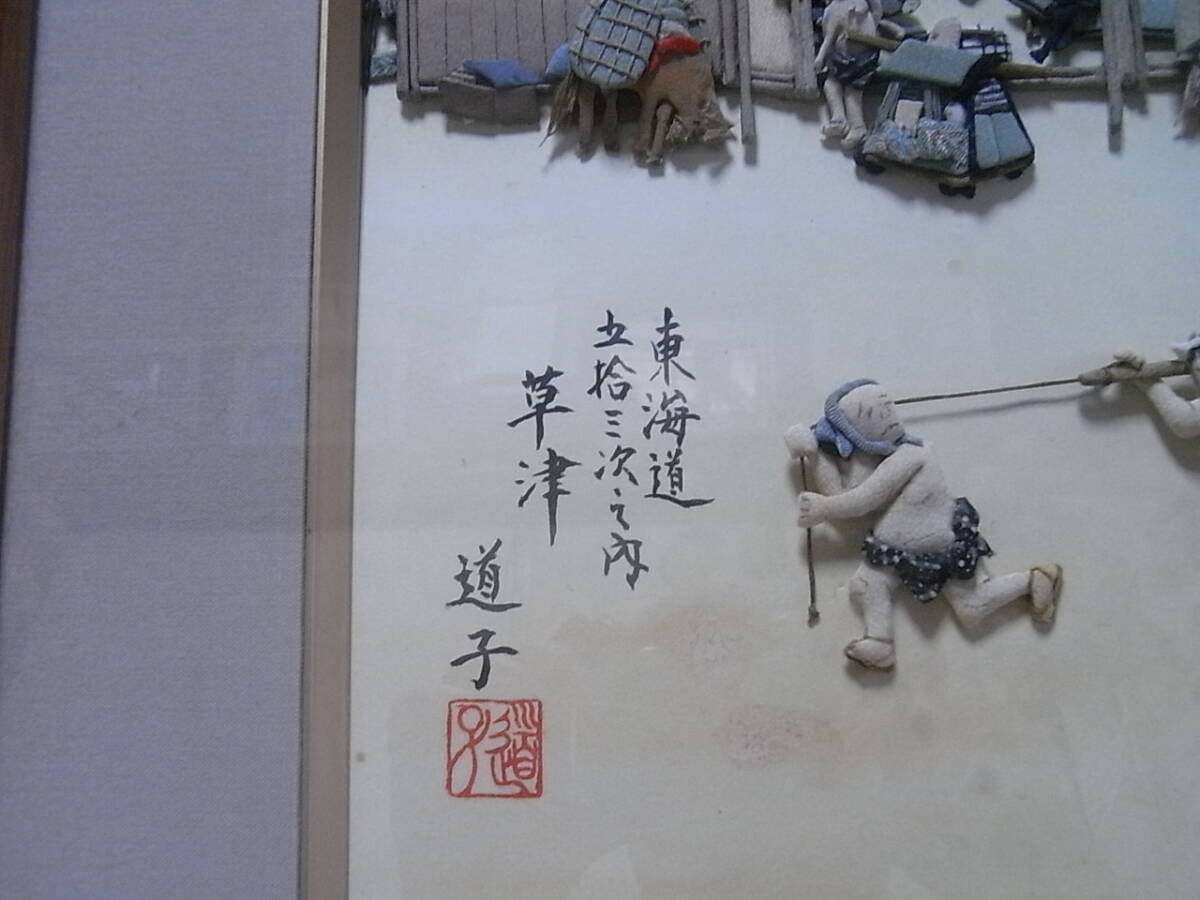 東海道
五拾三次之内
草津
道子
道子